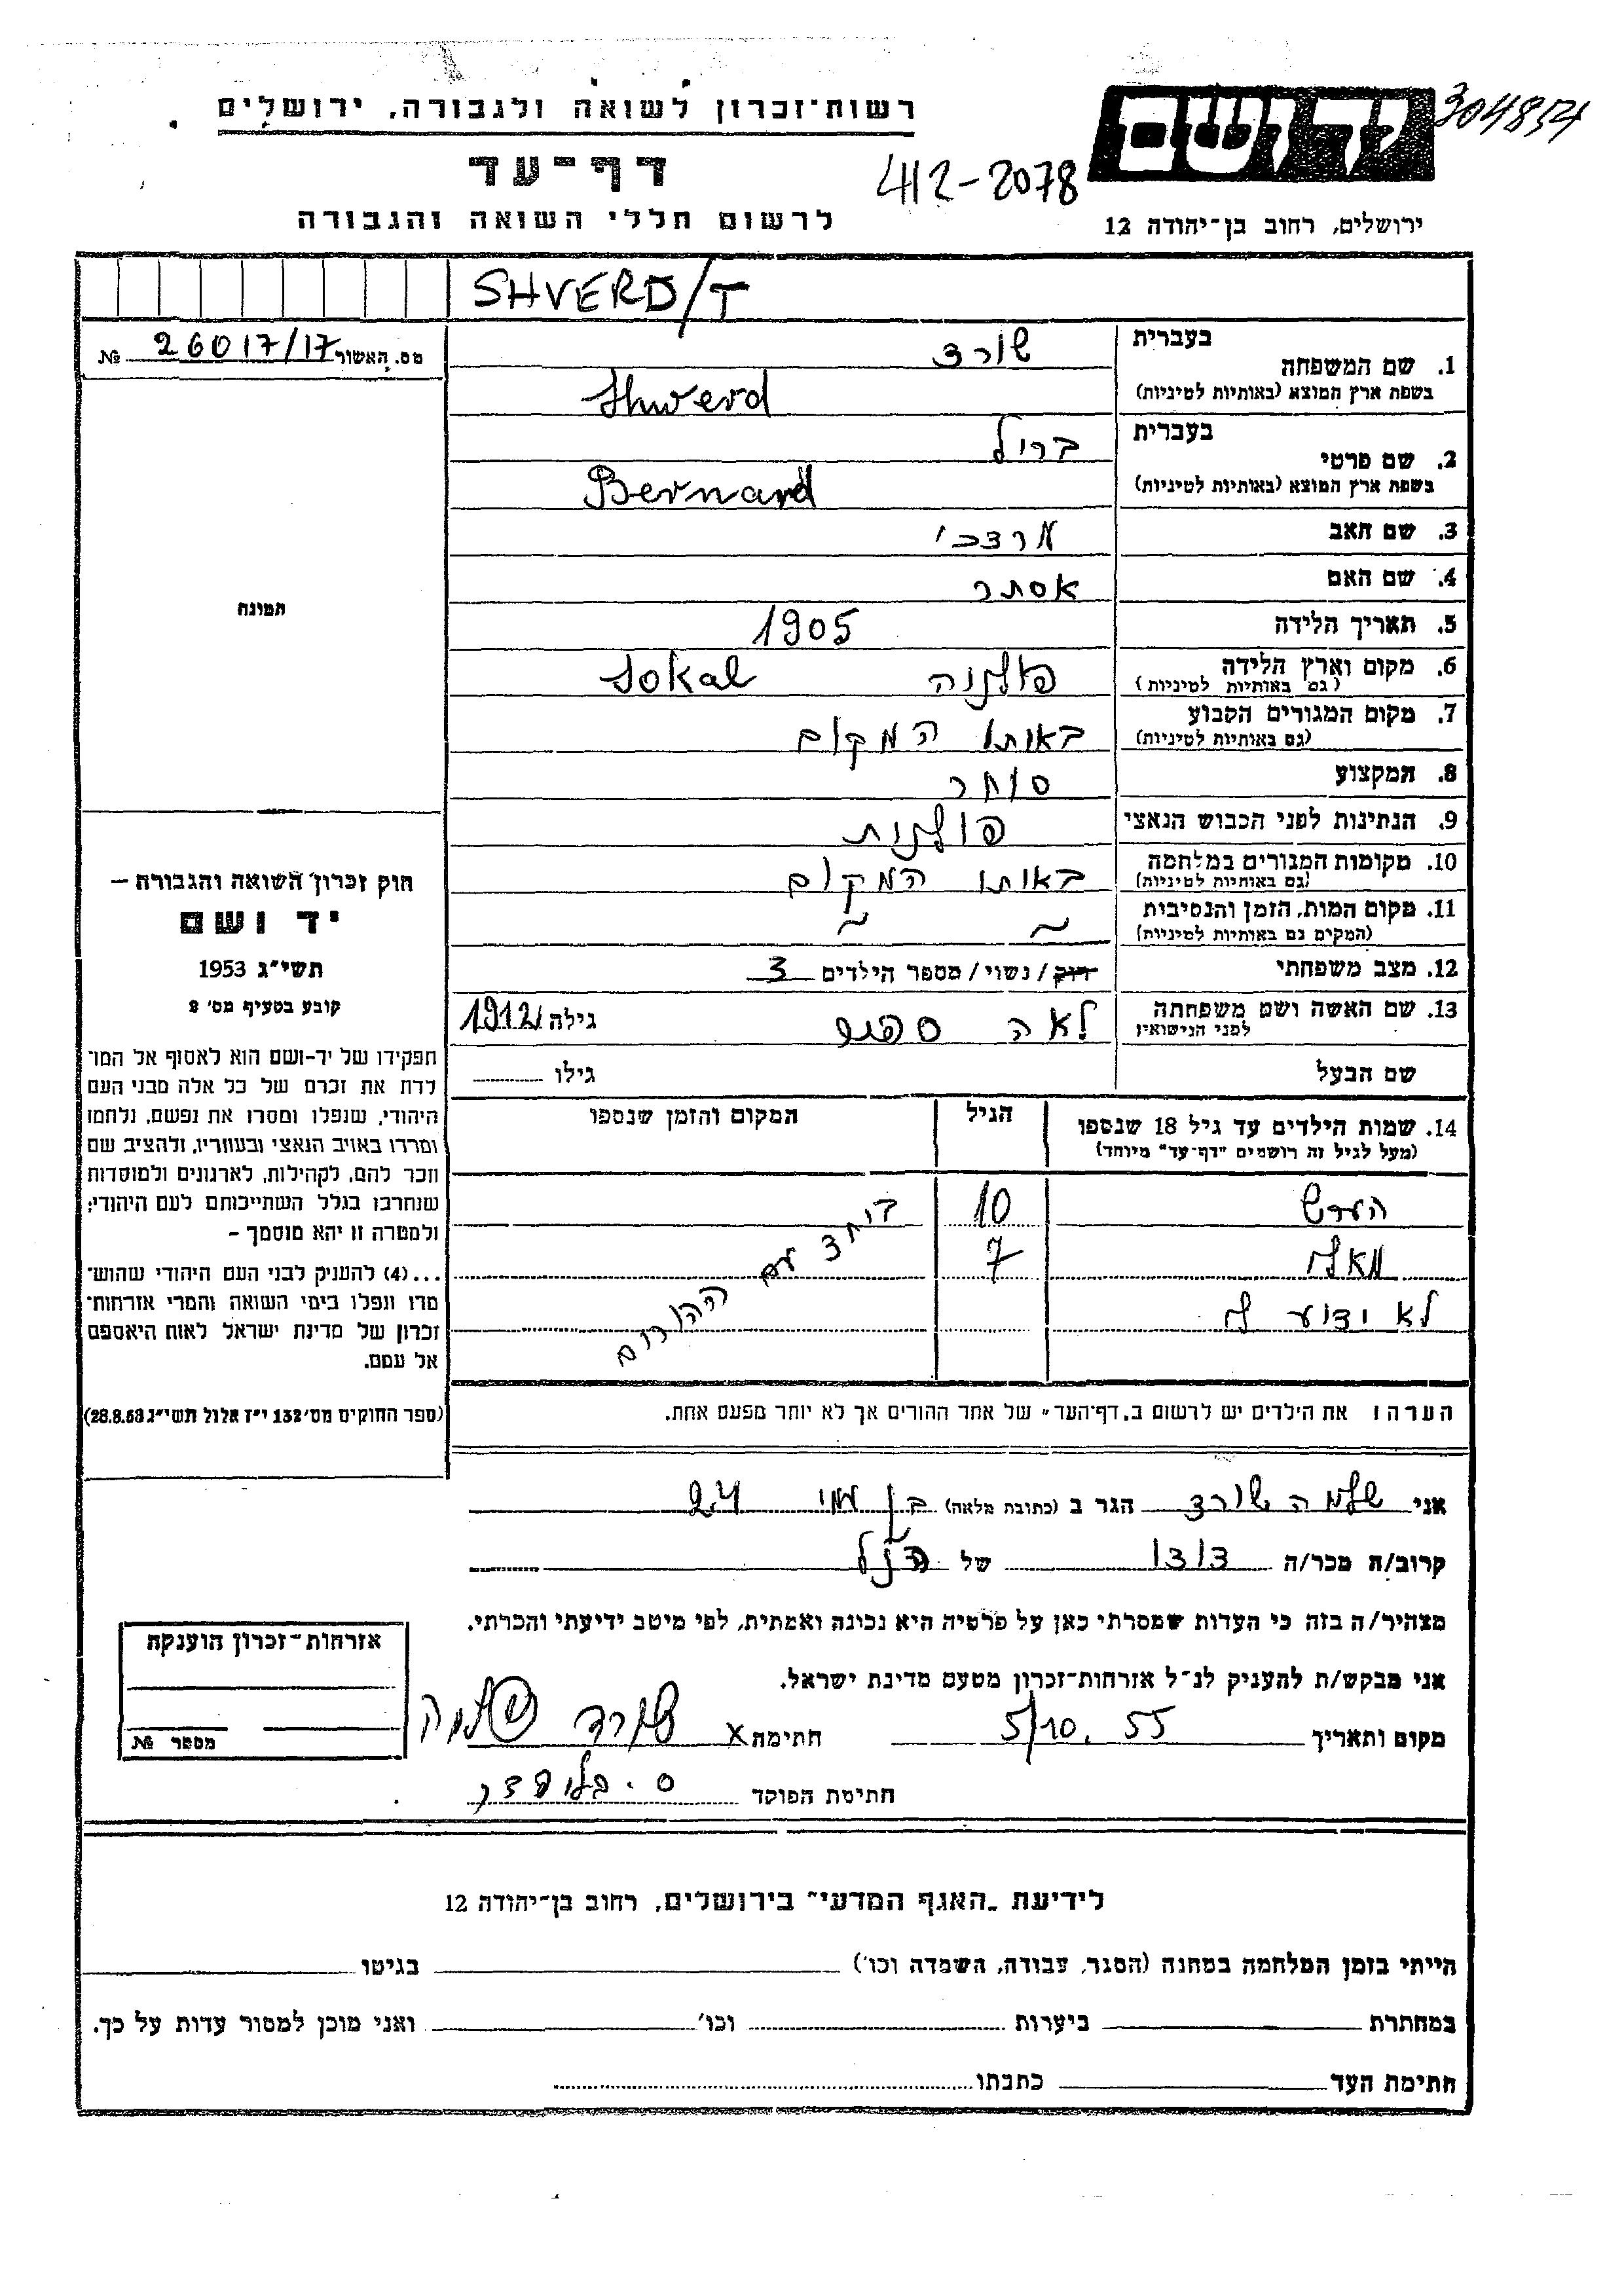 רשות־זכרון לשואה ולגבורה, ירושלים
יד ושם
304854
דף־עד
412-2078
לרשום חללי השואה והגבורה
ירושלים, רחוב בן־יהודה 12
SHVERD/T
מס. האשור 26017/17 №
בעברית
1. שם המשפחה שורד
בשפת ארץ המוצא (באותיות לטיניות) Shwerd
בעברית
2. שם פרטי בריל
בשפת ארץ המוצא (באותיות לטיניות) Bernard
3. שם האב מרדכי
4. שם האם אסתר
5. תאריך הלידה 1905
6. מקום וארץ הלידה פולניה Sokal
(גם באותיות לטיניות)
7. מקום המגורים הקבוע באותו המקום
(גם באותיות לטיניות)
8. המקצוע סוחר
9. הנתינות לפני הכבוש הנאצי פולנית
10. מקומות המגורים במלחמה באותו המקום
(גם באותיות לטיניות)
11. מקום המות, הזמן והנסיבות ~ ~
(המקום גם באותיות לטיניות)
12. מצב משפחתי רוק / נשוי / מספר הילדים 3
13. שם האשה ושם משפחתה לאה גילה 1912
לפני הנישואין
שם הבעל גילו
14. שמות הילדים עד גיל 18 שנספו הגיל המקום והזמן שנספו
(מעל לגיל זה רושמים "דף־עד" מיוחד)
10
7
לא ידוע
ביחד עם ההורים
הערה: את הילדים יש לרשום ב"דף־העד" של אחד ההורים אך לא יותר מפעם אחת.
תמונה
חוק זכרון השואה והגבורה —
יד ושם
תשי"ג 1953
קובע בסעיף מס' 2
תפקידו של יד־ושם הוא לאסוף אל המו־
לדת את זכרם של כל אלה מבני העם
היהודי, שנפלו ומסרו את נפשם, נלחמו
ומרדו באויב הנאצי ובעוזריו, ולהציב שם
וזכר להם, לקהילות, לארגונים ולמוסדות
שנחרבו בגלל השתייכותם לעם היהודי;
ולמטרה זו יהא מוסמך —
...(4) להעניק לבני העם היהודי שהוש־
מדו ונפלו בימי השואה והמרי אזרחות־
זכרון של מדינת ישראל לאות היאספם
אל עמם.
(ספר החוקים מס' 132 י"ז אלול תשי"ג 28.8.53)
אני שלמה שורד הגר ב (כתובת מלאה) 24
קרוב/ה מכר/ה דוד של הנ"ל
מצהיר/ה בזה כי העדות שמסרתי כאן על פרטיה היא נכונה ואמתית, לפי מיטב ידיעתי והכרתי.
אני מבקש/ת להעניק לנ"ל אזרחות־זכרון מטעם מדינת ישראל.
מקום ותאריך 5/10. 55 חתימה x שורד שלמה
חתימת הפוקד
אזרחות־זכרון הוענקה
מספר №
לידיעת "האגף המדעי" בירושלים, רחוב בן־יהודה 12
הייתי בזמן המלחמה במחנה (הסגר, עבודה, השמדה וכו') בגיטו
במחתרת ביערות וכו' ואני מוכן למסור עדות על כך.
חתימת העד כתבתו